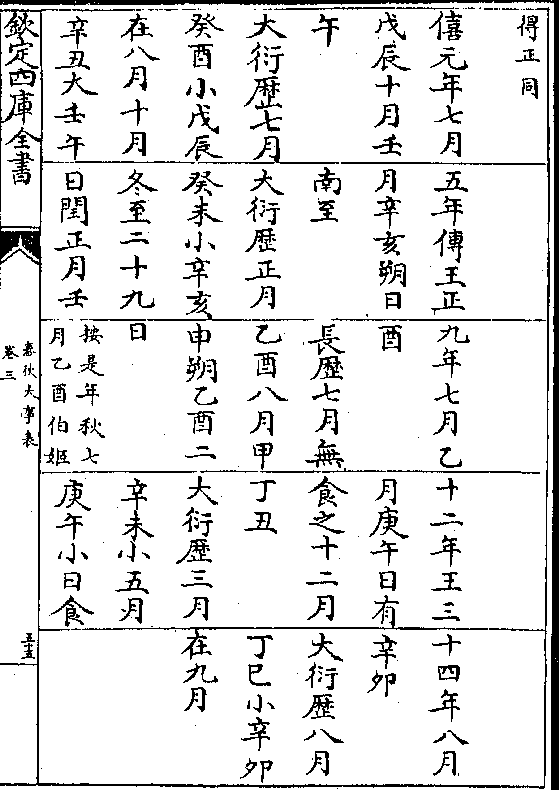 得正同
僖元年七月
戊辰十月壬
午
大衍歷七月
癸酉小戊辰
在八月十月
辛丑大壬午
五年傳王正
月辛亥朔日
南至
大衍歷正月
癸未小辛亥
冬至二十九
日閏正月壬
九年七月乙
酉
長歷七月無
乙酉八月甲
申朔乙酉二
日
按是年秋七
月乙酉伯姬
十二年王三
月庚午日有
食之十二月
丁丑
大衍歷三月
辛未小五月
庚午小日食
十四年八月
辛卯
大衍歷八月
丁巳小辛卯
在九月
欽定四庫全書
春秋大事表
卷三